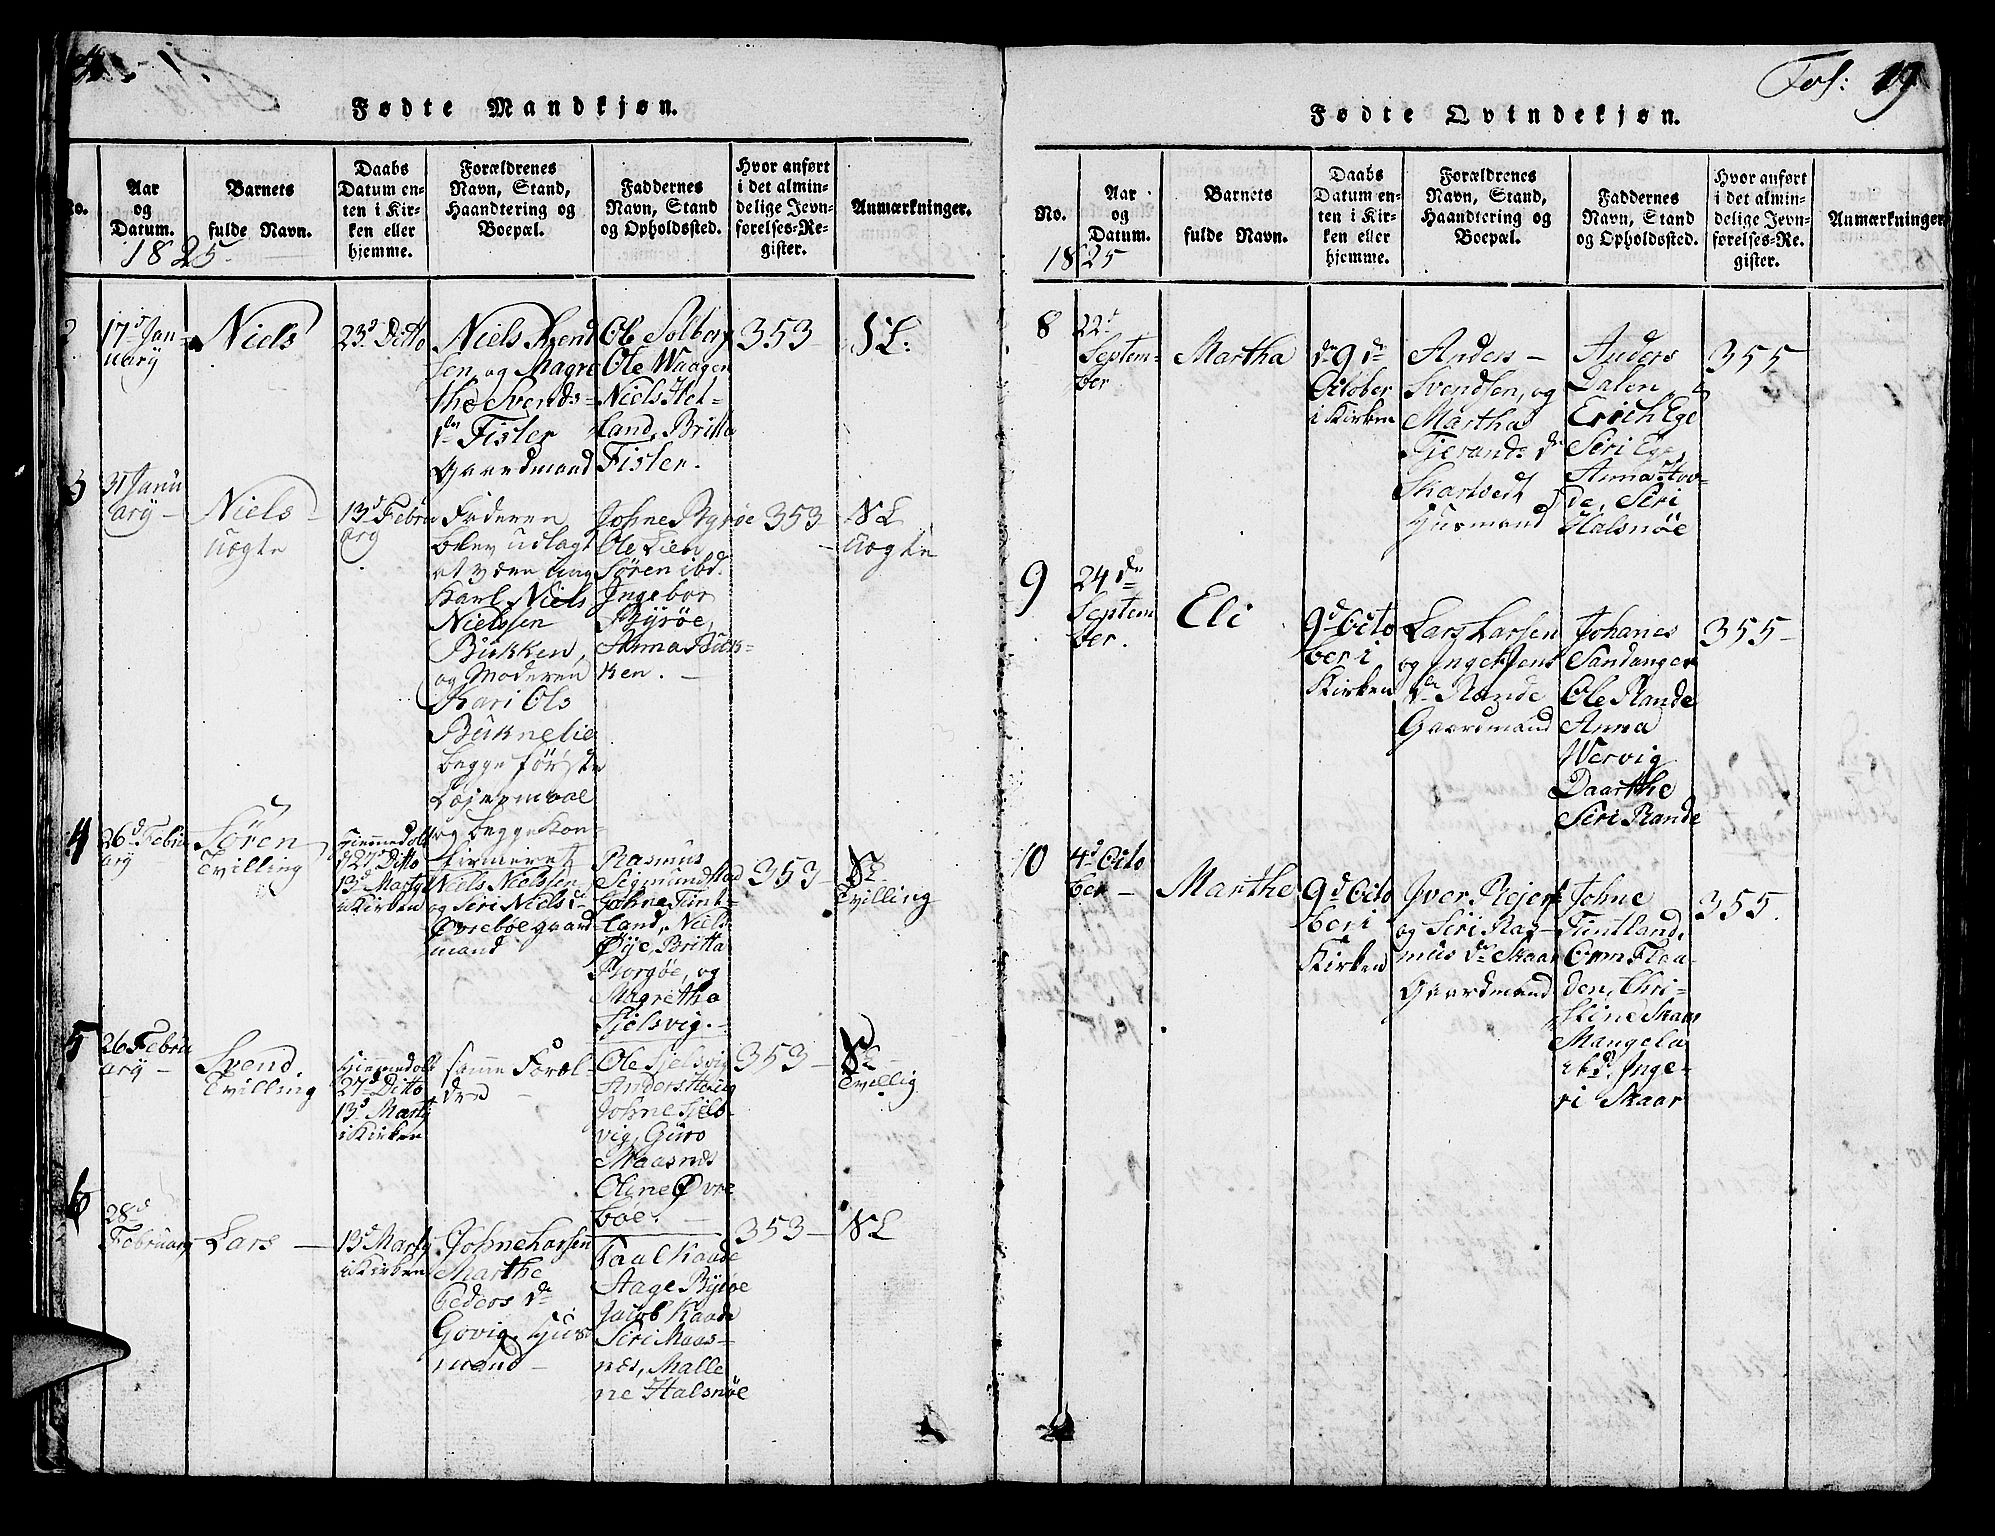 Fødte Mandkjøn.
No.
Aar
og
Datum.
1825
Barnets
fulde Navn.
Daabs
Datum en-
ten i Kir-
ken eller
hjemme.
Forældrenes
Navn, Stand,
Haandtering og
Boepæl.
Faddernes
Navn, Stand
og Opholdssted.
Hvor anført
i det almin-
delige Jevn-
førelses-Re-
gister.
Anmærkninger.
17d Jan-
uary
Niels
23d Ditto
Niels Svend
sen, og Magre
the Svends-
dr Fister
Gaardmand
Ole Solberg
Ole Waagen
Niels Hel-
land, Britta
Fister.
353
31 Janu
ary
Niels
uægte
13d Febru
ary
Faderen
blev udlagt
at være ung
Karl Niels
Nielssen
Bukken,
og Moderen
Kari Ols
Buknelie
begge første
Lejermaal
og begge Kon-
firmeret
Johne Byrøe
Ole Lien
Søren ibd.
Ingebor
Byrøe,
Anna Buk-
ken.
353
uægte
4
26d Febru
ary
Søren
Tvilling
Hiemmedøbt
27d Ditto
13d Marty
i Kirken
Niels Nielssen
og Siri Niels d
Øvrebøe gaard
mand
Rasmus
Sigmundstad
Johne Tunt-
land, Niels
Øye, Britta
Bjorgøe, og
Magretha
Sielsvig.
353
Tvilling
5
26 Febru
ary
Svend
Tvilling
Hiemmedøbt
27d Ditto
13d Marty
i Kirken
samme Foræl
dre
Ole Sielsvig
Anders Haug
Johne Siels
vig, Guro
Maasnes
Oline Øvre
bøe.
353
Tvillig
6
28d
February
Lars
13d Marty
i Kirken
Johne Larsen
Marthe
Peders dr
Govig, Huus
mand
Paal Kaade
Stage Byrøe
Jacob Kaade
Siri Maas-
nes, Malle
ne Halsnøe
353
Fol: 19
Fødte Qvindekjøn.
No.
Aar
og
Datum.
1825
Barnets
fulde Navn.
Daabs
Datum en-
ten i Kir-
ken eller
hjemme.
Forældrenes
Navn, Stand,
Haandtering og
Boepæl.
Faddernes
Navn, Stand
og Opholdssted.
Hvor anført
i det almin-
delige Jevn-
førelses-Re-
gister.
Anmærkninger
8
22d
Septem-
ber
Martha
9de
October
i Kirken
Anders
Svendsen, og
Martha
Tierands dr
Skartvedt
Husmand
Anders
Dalen
Erich Ege
Siri Ege
Anna
Siri
Halsnøe
355
9
24de
Septem
ber.
Eli
9d Octo
ber i
Kirken
Lars Larsen
og Inge Jens
dr Rande
Gaardmand
Johanes
Sandanger
Ole Rande
Anna
Wervig
Daarthe
Siri Rande
355
10
4d Octo
ber
Marthe
9d Octo
ber i
Kirken
Iver Rejer
og Siri Ras-
mus dr Skaar
Gaardmand
Johne
Tuntland,
Orm Floa-
den, Chri-
stine Skaar
Mangela
ibd. Inge-
ri Skaar
355.